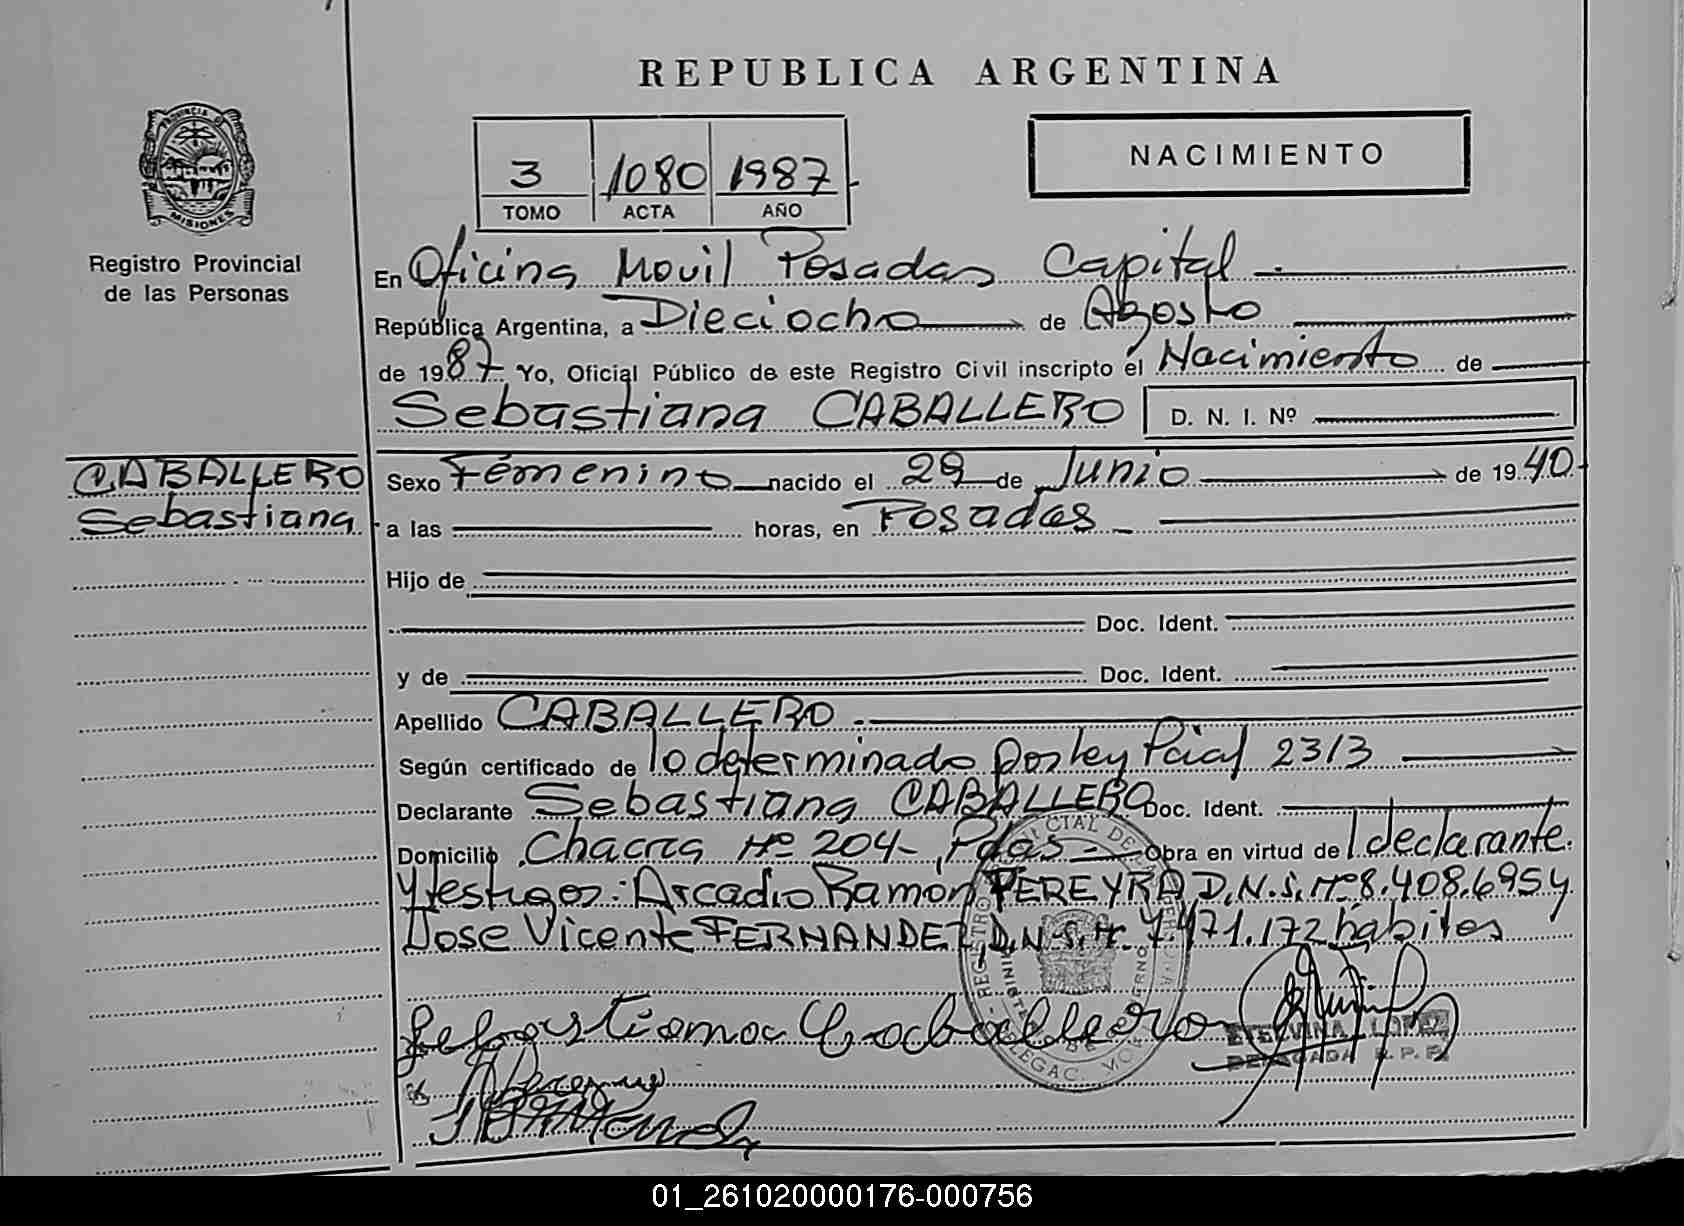 REPUBLICA ARGENTINA
PROVINCIA DE
MISIONES
Registro Provincial
de las Personas
3 1080 1987
TOMO ACTA AÑO
NACIMIENTO
En Oficina Movil Posadas Capital
República Argentina, a Dieciocho de Agosto
de 1987 Yo, Oficial Público de este Registro Civil inscripto el Nacimiento de
Sebastiana CABALLERO D. N. I. Nº
CABALLERO
Sebastiana
Sexo Femenino nacido el 29 de Junio de 1940
a las horas, en Posadas
Hijo de
Doc. Ident.
y de Doc. Ident.
Apellido CABALLERO
Según certificado de lo determinado por ley Pcial 2313
Declarante Sebastiana CABALLERO Doc. Ident.
Domicilio Chacra Nº 204- Pdas- Obra en virtud de l declarante
y testigos: Arcadio Ramón PEREYRA D.N.I. Nº 8.408.695 y
Jose Vicente FERNANDEZ D.N.I. Nº 7.471.172 habiles
Sebastiana Caballero
ETELVINA LOPEZ
DELEGADA R. P. P.
01_261020000176-000756